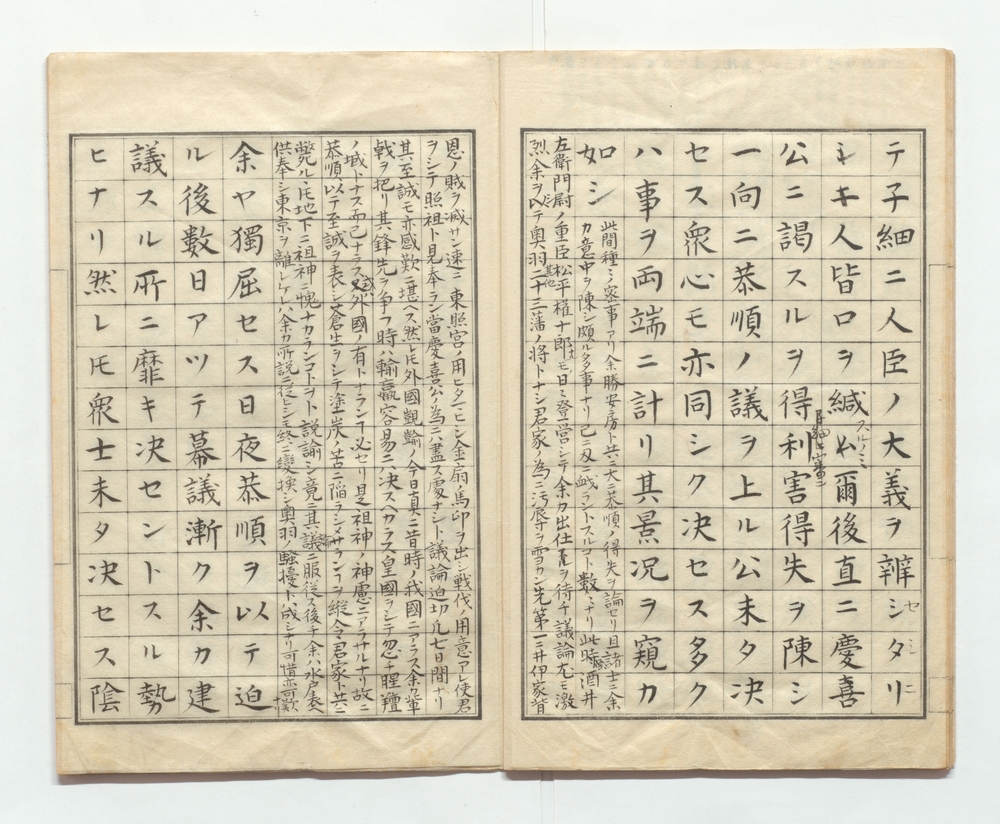 テ子細ニ人臣ノ大義ヲ辨シタリ
シキ人皆口ヲ緘ム爾後直ニ慶喜
公ニ謁スルヲ得利害得失ヲ陳シ
一向ニ恭順ノ議ヲ上ル公未タ决
セス衆心モ亦同シク决セス多ク
ハ事ヲ両端ニ計リ其景况ヲ窺カ
如シ
此間種ミ密事アリ余勝安房ト共ニ大ニ恭順ノ得失ヲ論セリ且諸士ニ余
カ意中ヲ陳シ頗ル多事ナリ已ニ反ニ戕ラントスルコト数ミナリ此時酒井
左衛門尉ノ重臣松平権十郎モ日ミ登営シテ余カ出仕ヲ待チ議論尤モ激
烈余ヲシテ奥羽二十三藩ノ将トナシ君家ノ為ニ汚辱ヲ雪カン先第一ニ井伊家背
恩ノ賊ヲ滅サン速ニ東照宮ノ用ヒタマヒシ金扇ノ馬印ヲ出シ戦伐ノ用意アレ使君
ヲシテ照祖ト見奉ラン當慶喜公ノ為ニハ盡ス處ナシト議論迫切凡七日間ナリ
其至誠モ亦感歎ニ堪ヘス然レ𪜈外國覬覦ノ今日真ニ昔時ノ我國ニアラス余カ輩
戟ヲ把リ其鋒先ヲ争フ時ハ輸贏容易ニハ决スヘカラス皇國ヲシテ忽チ腥羶
ノ域トナス而已ナラス外國ノ有トナランコ必セリ是祖神ノ神慮ニアラサルナリ故ニ
恭順以テ至誠ヲ表シ蒼生ヲシテ塗炭ノ苦ニ陥ラシメサランコヲ縦令君家ト共ニ
斃ル𪜈地下ニ祖神ニ愧ナカランコトヲト説諭シ竟ニ其議ニ服従ス後チ余ハ水戸表
供奉シ東京ヲ離レケレハ余カ所説ニ従ヒシモ終ニ變換シ奥羽ノ騒擾ト成シナリ可惜亦可歎
余ヤ獨屈セス日夜恭順ヲ以テ迫
ル後數日アツテ幕議漸ク余カ建
議スル所ニ靡キ决セントスル勢
ヒナリ然レ𪜈衆士未タ决セス陰